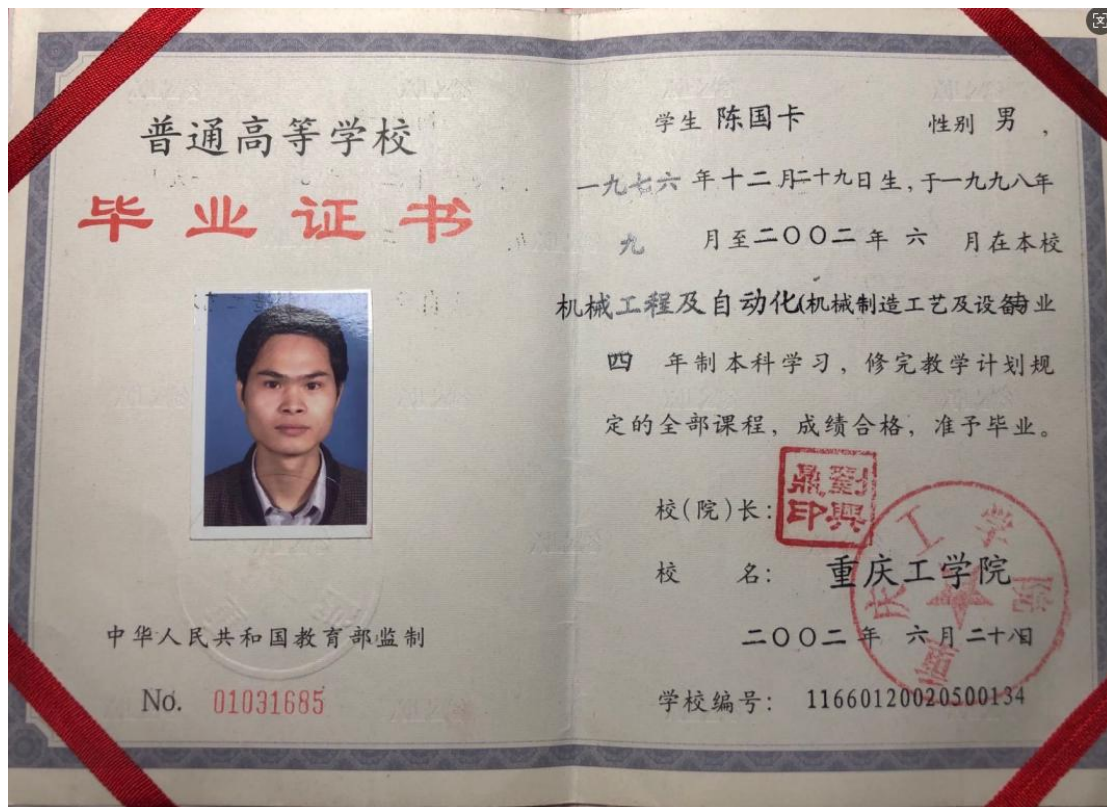 普通高等学校
毕业证书
中华人民共和国教育部监制
No. 01031685
学生 陈国卡 性别 男 ，
一九七六 年十二月二十九日生，于一九九八年
九 月至二〇〇二年 六 月在本校
机械工程及自动化(机械制造工艺及设备)专业
四 年制本科学习，修完教学计划规
定的全部课程，成绩合格，准予毕业。
校(院)长：
劉興鼎印
校 名： 重庆工学院
重庆工学院
二〇〇二年 六月二十八日
学校编号： 11660120020500134